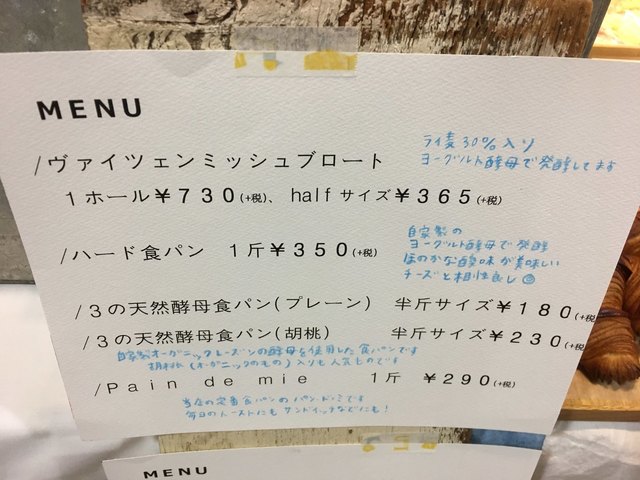 MENU
ライ麦30%入り
ヨーグルト酵母で発酵してます
/ヴァイツェンミッシュブロート
1ホール¥730(+税)、halfサイズ¥365(+税)
自家製の
ヨーグルト酵母で発酵
ほのかな酸味が美味しい
チーズと相性良し
/ハード食パン 1斤¥350(+税)
/3の天然酵母食パン(プレーン) 半斤サイズ¥180(+税)
/3の天然酵母食パン(胡桃) 半斤サイズ¥230(+税)
自家製オーガニックレーズンの酵母を使用した食パンです
胡桃(オーガニックのもの)入りも人気ものです
/Pain de mie 1斤 ¥290(+税)
当店の定番食パンのパン・ド・ミです
毎日のトーストにもサンドイッチなどにも!
MENU